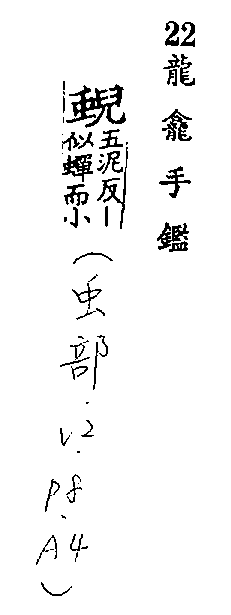 22 龍龕手鑑
蜺
五泥反丨
似蟬而小
(虫部.V2.P8.A4)